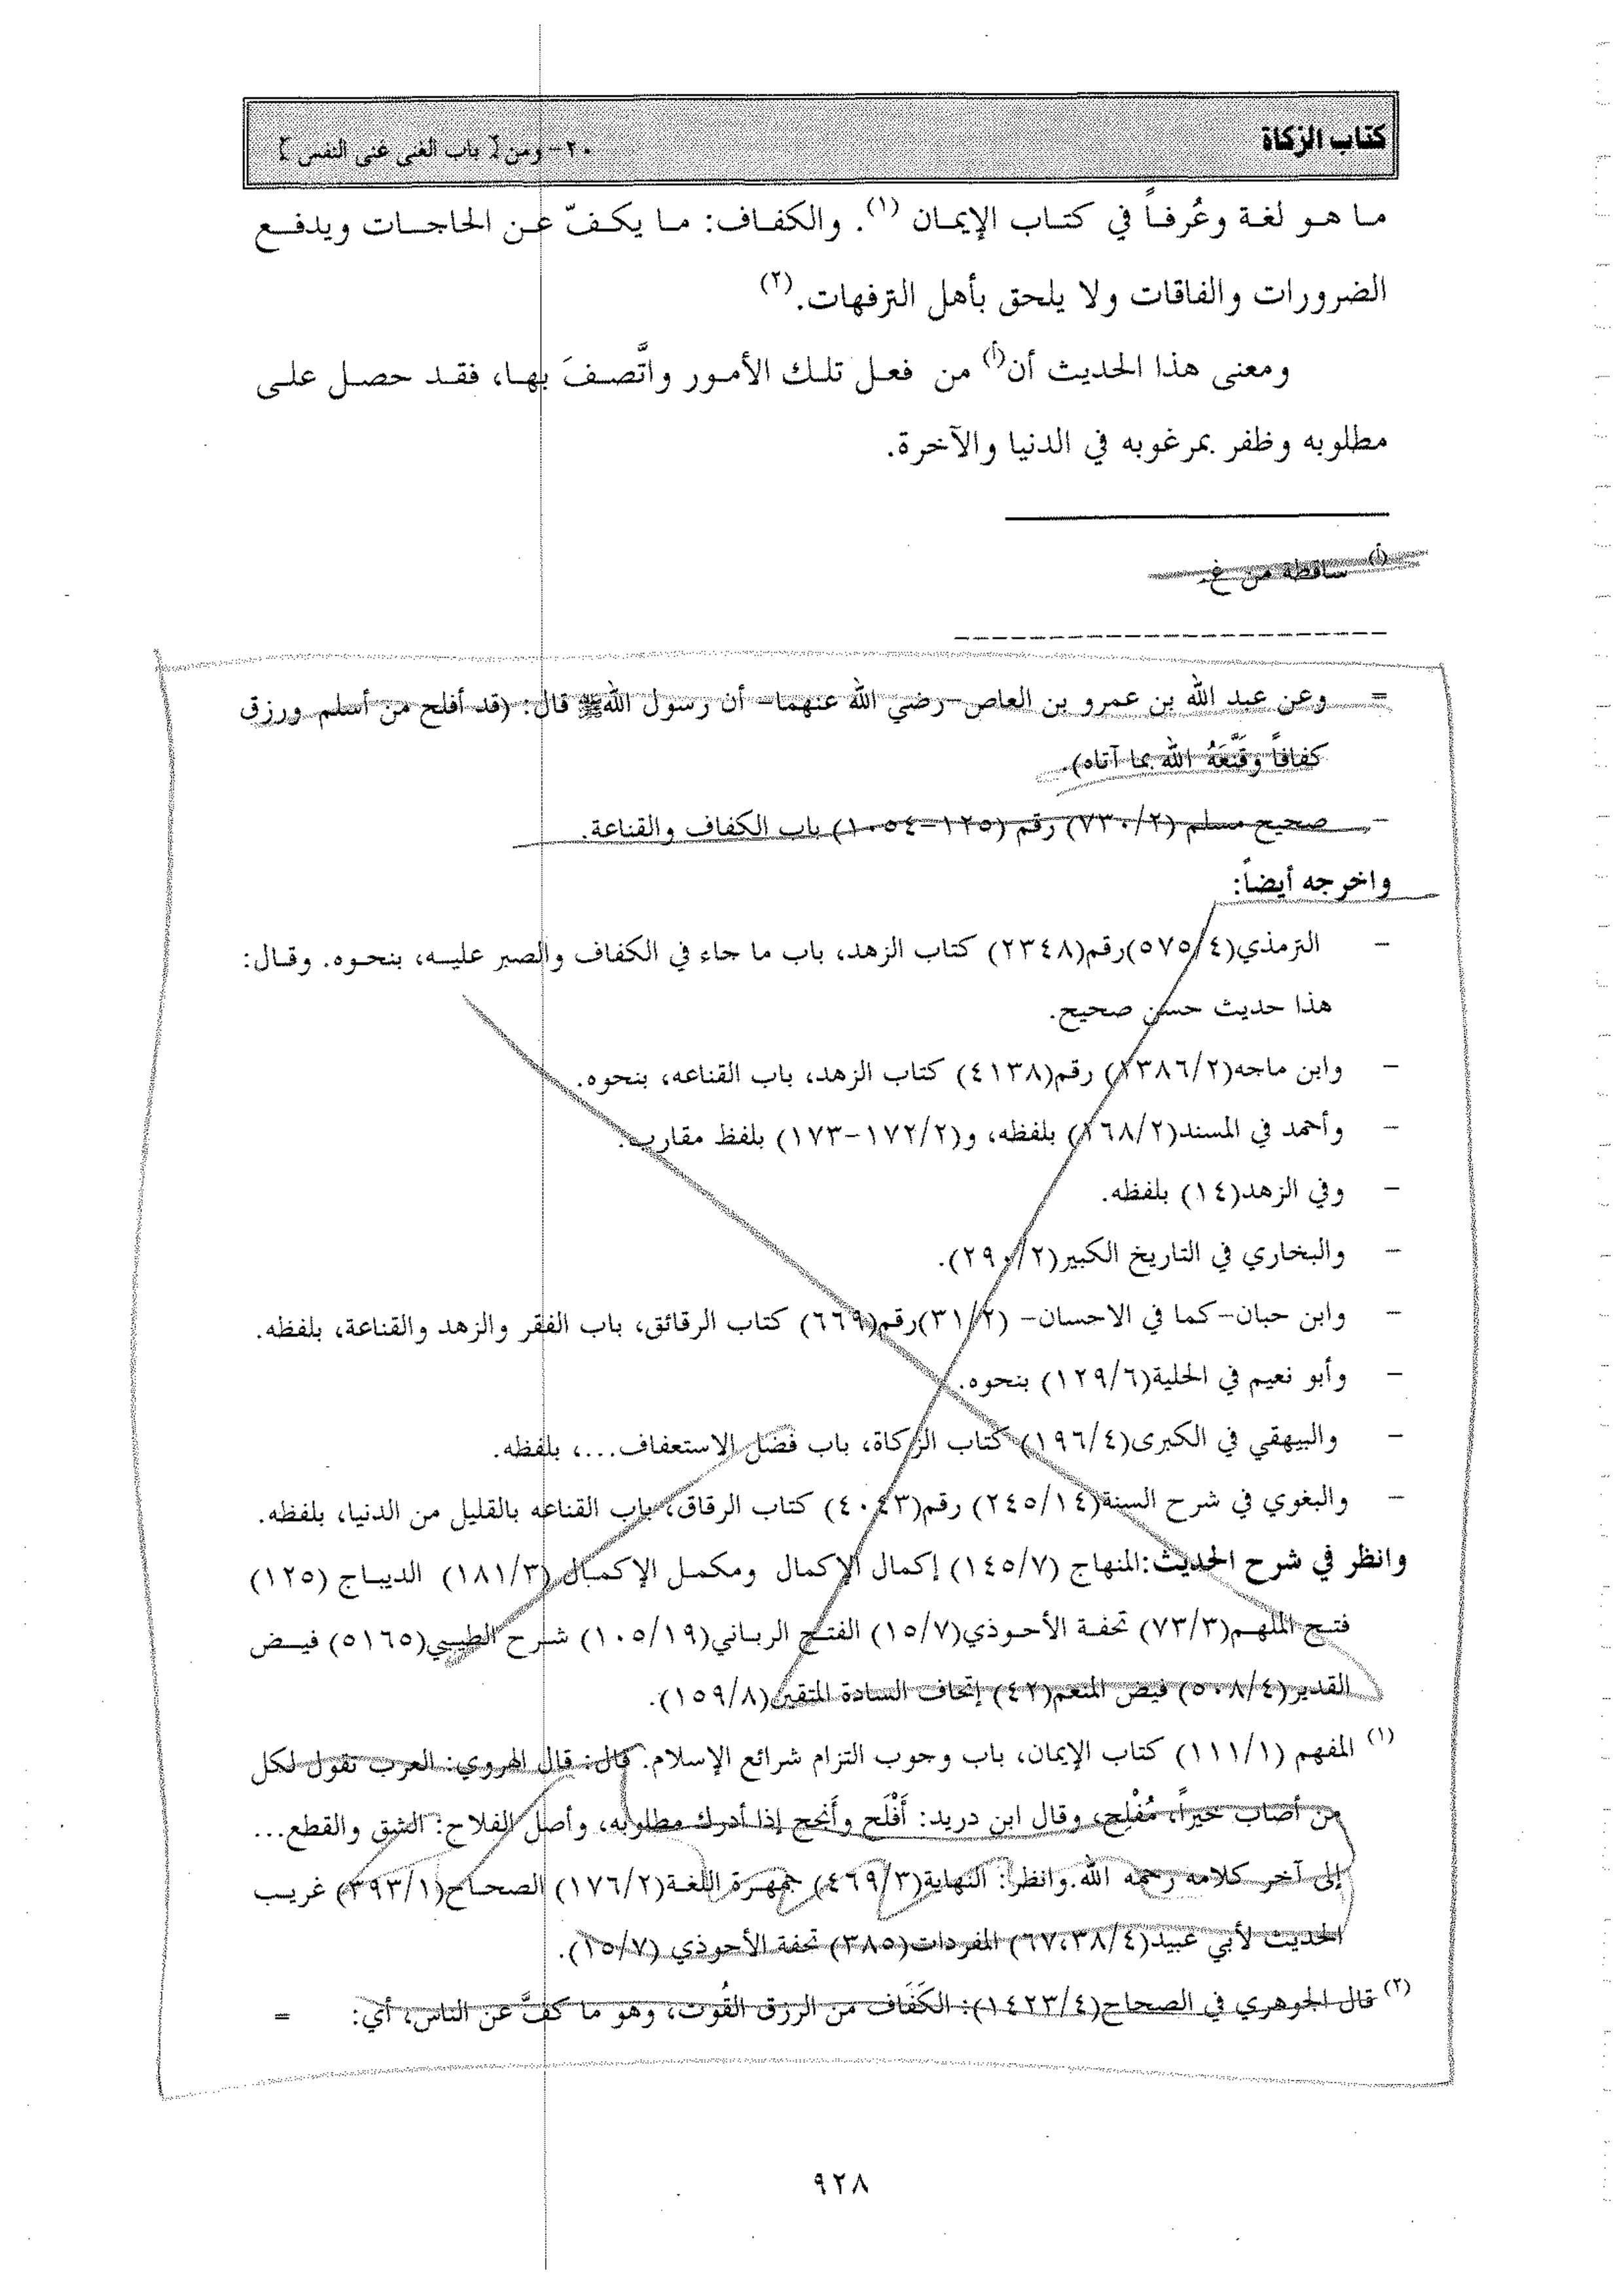 كتاب الزكاة
٢٠- ومن [ باب الغنى غنى النفس ]
ما هو لغة وعُرفاً في كتاب الإيمان (١). والكفاف: ما يكفّ عن الحاجات ويدفع
الضرورات والفاقات ولا يلحق بأهل الترفهات.(٢)
ومعنى هذا الحديث أن(أ) من فعل تلك الأمور واتَّصفَ بها، فقد حصل على
مطلوبه وظفر بمرغوبه في الدنيا والآخرة.
(أ) ساقطة من غ.
= وعن عبد الله بن عمرو بن العاص -رضي الله عنهما- أن رسول الله ﷺ قال: (قد أفلح من أسلم ورزق
كفافاً وقَنَّعَهُ الله بما آتاه).
- صحيح مسلم (٧٣٠/٢) رقم (١٢٥-١٠٥٤) باب الكفاف والقناعة.
واخرجه أيضاً:
- الترمذي(٥٧٥/٤)رقم(٢٣٤٨) كتاب الزهد، باب ما جاء في الكفاف والصبر عليه، بنحوه. وقال:
هذا حديث حسن صحيح.
- وابن ماجه(١٣٨٦/٢) رقم(٤١٣٨) كتاب الزهد، باب القناعه، بنحوه.
- وأحمد في المسند(١٦٨/٢) بلفظه، و(١٧٢/٢-١٧٣) بلفظ مقارب.
- وفي الزهد(١٤) بلفظه.
- والبخاري في التاريخ الكبير(٢٩٠/٢).
- وابن حبان-كما في الاحسان- (٣١/٢)رقم(٦٦٩) كتاب الرقائق، باب الفقر والزهد والقناعة، بلفظه.
- وأبو نعيم في الحلية(١٢٩/٦) بنحوه.
- والبيهقي في الكبرى(١٩٦/٤) كتاب الزكاة، باب فضل الاستعفاف...، بلفظه.
- والبغوي في شرح السنة(٢٤٥/١٤) رقم(٤٠٤٣) كتاب الرقاق، باب القناعه بالقليل من الدنيا، بلفظه.
وانظر في شرح الحديث:المنهاج (١٤٥/٧) إكمال الإكمال ومكمل الإكمال (١٨١/٣) الديباج (١٢٥)
فتح الملهم(٧٣/٣) تحفة الأحوذي(١٥/٧) الفتح الرباني(١٠٥/١٩) شرح الطيبي(٥١٦٥) فيض
القدير(٥٠٨/٤) فيض المنعم(٤٢) إتحاف السادة المتقين(١٥٩/٨).
(١) المفهم (١١١/١) كتاب الإيمان، باب وجوب التزام شرائع الإسلام. قال: قال الهروي: العرب تقول لكل
من أصاب خيراً، مُفْلِح، وقال ابن دريد: أَفْلَح وأَنجح إذا أدرك مطلوبه، وأصل الفلاح: الشق والقطع...
إلى آخر كلامه رحمه الله.وانظر: النهاية(٤٦٩/٣) جمهرة اللغة(١٧٦/٢) الصحاح(٣٩٣/١) غريب
الحديث لأبي عبيد(٦٧،٣٨/٤) المفردات(٣٨٥) تحفة الأحوذي (١٥/٧).
(٢) قال الجوهري في الصحاح(١٤٢٣/٤): الكَفَاف من الرزق القُوت، وهو ما كفَّ عن الناس، أي: =
٩٢٨